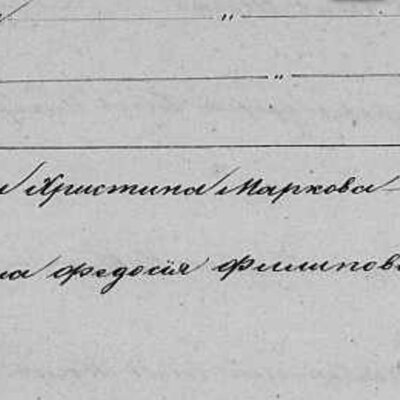 "
"
Христина Маркова
федосiя Филипова